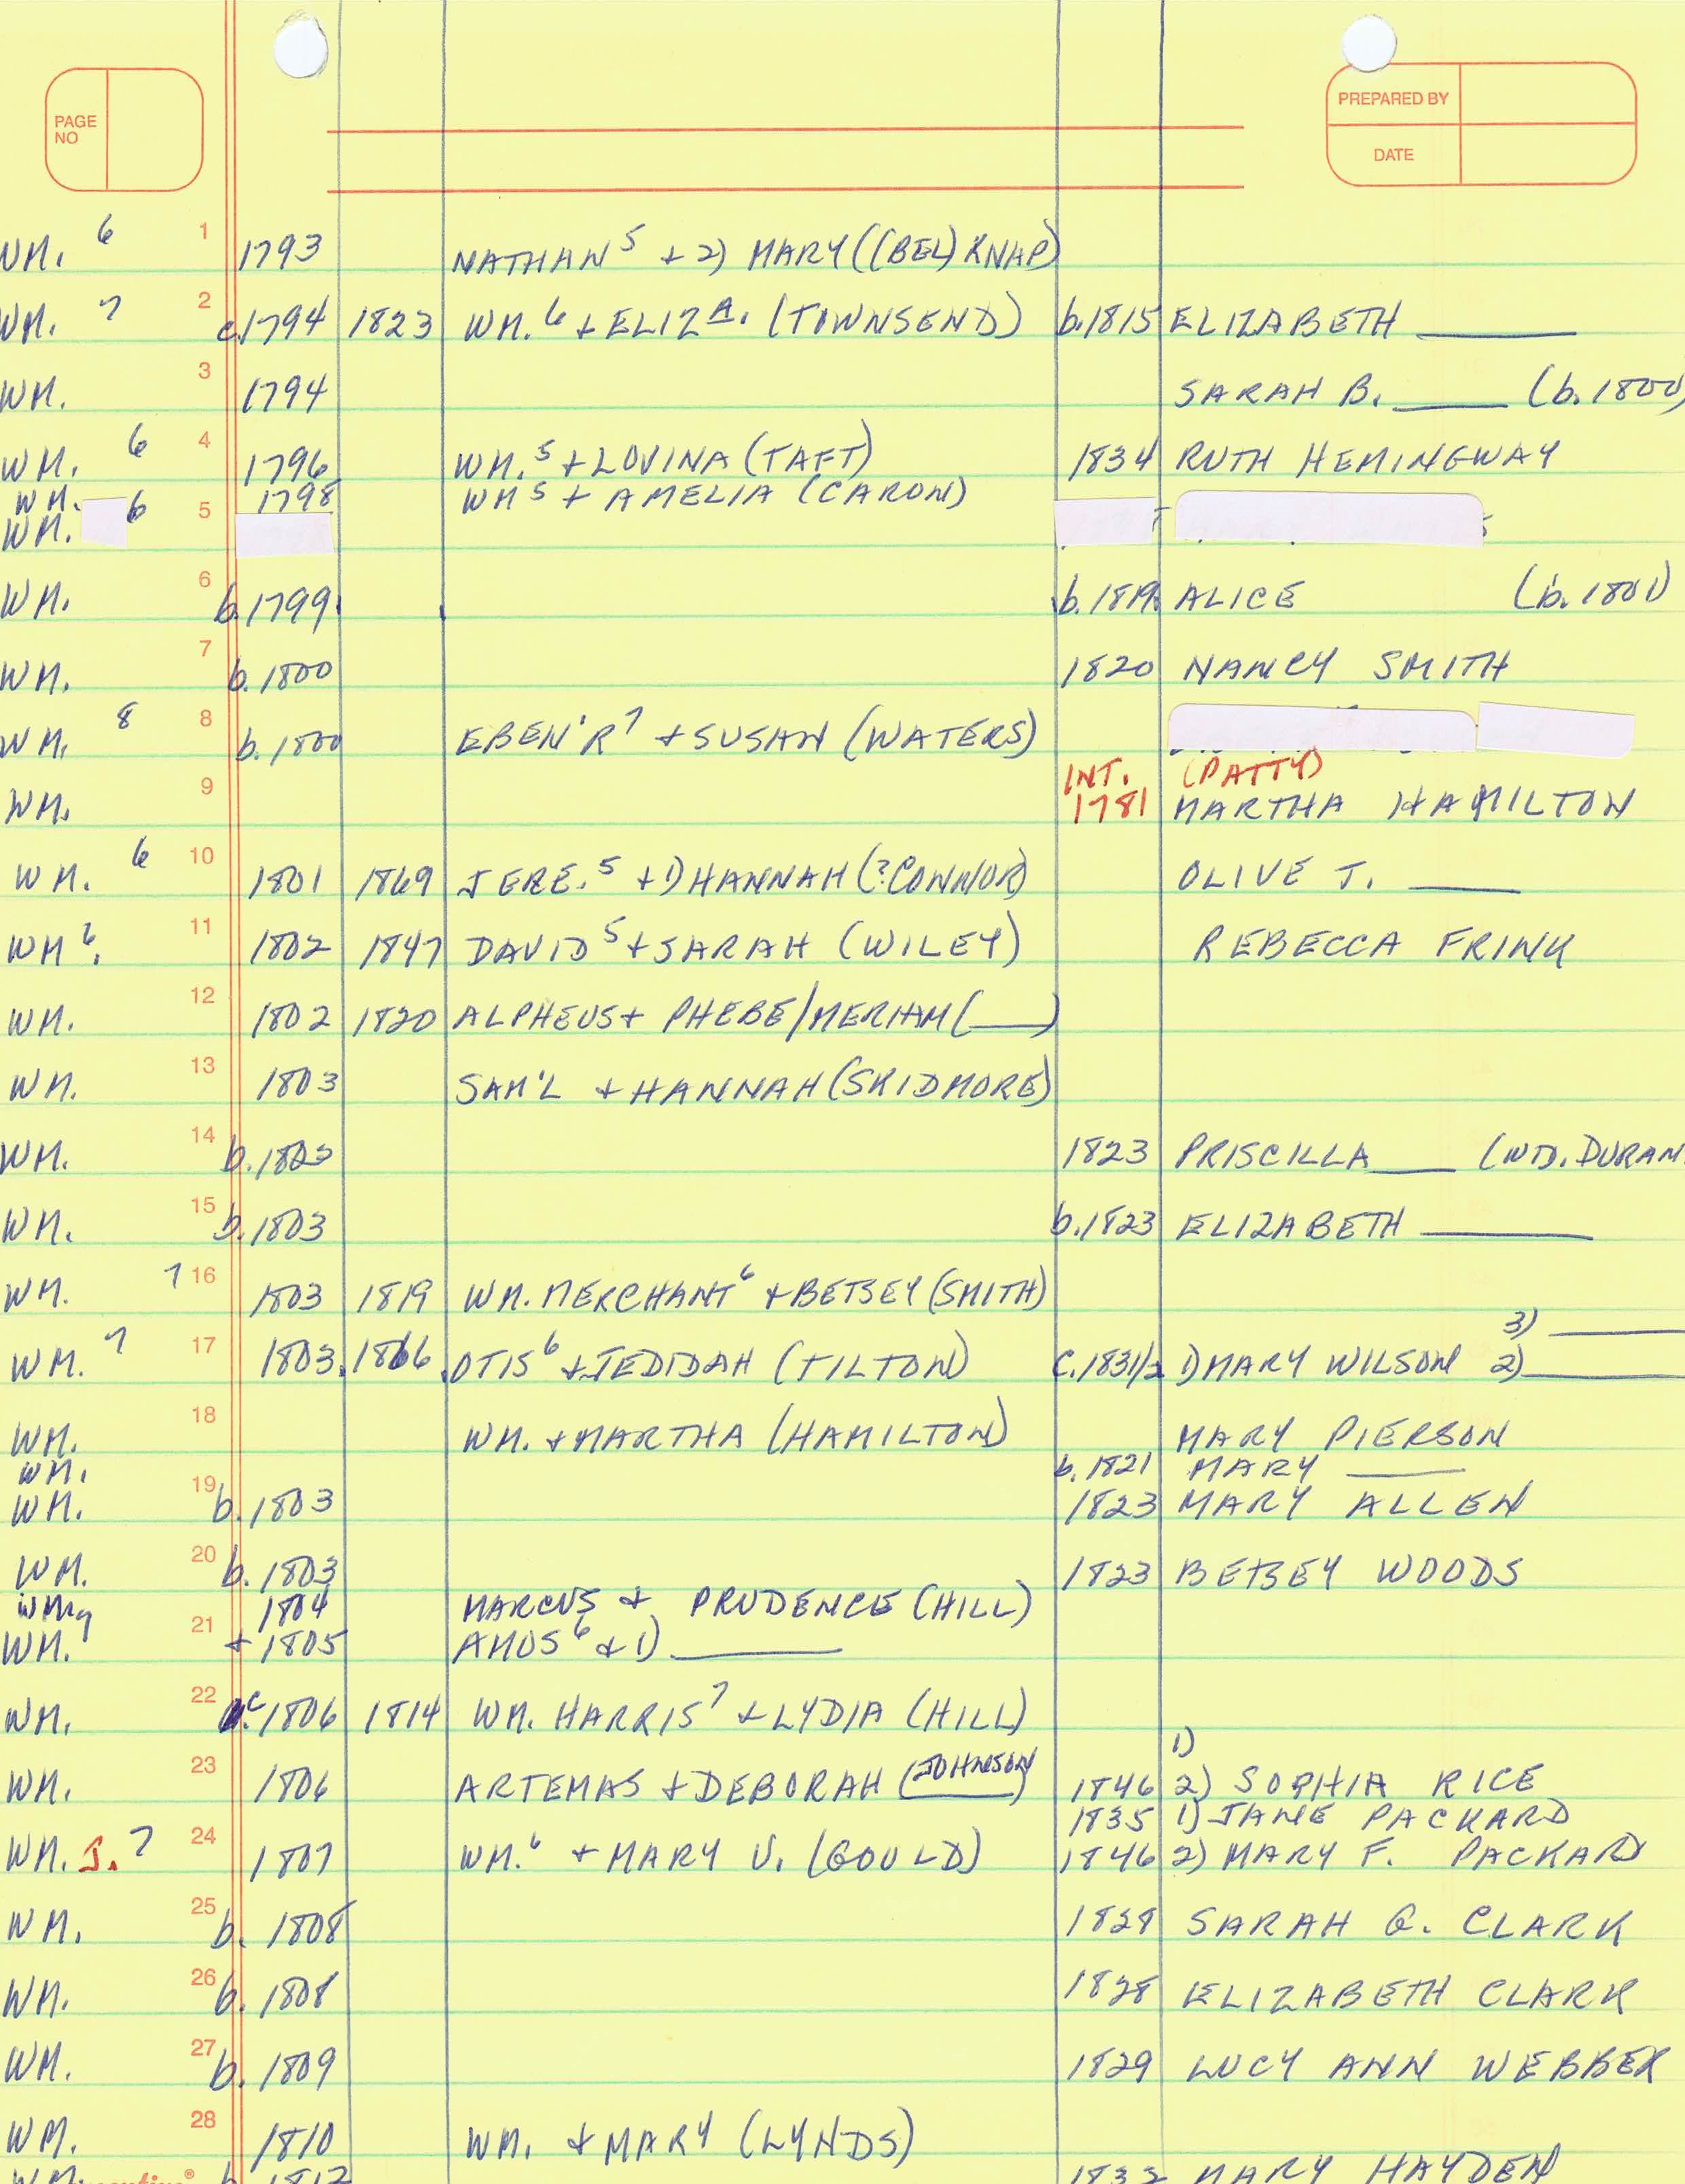 PAGE NO
PREPARED BY
DATE
WM. 6 1 1793 NATHAN 5 + 2) MARY ((BEL) KNAP)
WM. 7 2 c.1794 1823 WM. 6 + ELIZ A. (TOWNSEND) b.1815 ELIZABETH ____
WM. 3 1794 SARAH B. ____ (b.1800)
WM. 6 4 1796 WM. 5 + LOVINA (TAFT) 1834 RUTH HEMINGWAY
WM. 1798 WM 5 + AMELIA (CARON)
WM. 6 5
WM. 6 b.1799 b.1819 ALICE (b.1801)
WM. 7 b.1800 1820 NANCY SMITH
WM. 8 8 b.1800 EBEN'R 7 + SUSAN (WATERS)
INT. (PATTY)
WM. 9 1781 MARTHA HAMILTON
WM. 6 10 1801 1869 JERE. 5 + 1) HANNAH (?CONNOR) OLIVE J. ____
WM 6. 11 1802 1847 DAVID 5 + SARAH (WILEY) REBECCA FRINK
WM. 12 1802 1820 ALPHEUS + PHEBE/MERIAM (____)
WM. 13 1803 SAM'L + HANNAH (SKIDMORE)
WM. 14 b.1803 1823 PRISCILLA ____ (WID. DURAN
WM. 15 b.1803 b.1823 ELIZABETH ____
WM. 7 16 1803 1819 WM. MERCHANT 6 + BETSEY (SMITH)
3) ____
WM. 7 17 1803 1866 OTIS 6 + JEDIDAH (TILTON) c.1831/2 1) MARY WILSON 2) ____
WM. 18 WM. + MARTHA (HAMILTON) MARY PIERSON
WM. b.1821 MARY ____
WM. 19 b.1803 1823 MARY ALLEN
WM. 20 b.1803 1823 BETSEY WOODS
1804 MARCUS + PRUDENCE (HILL)
WM. 21 + 1805 AMOS 6 + 1) ____
WM. 22 c.1806 1814 WM. HARRIS 7 + LYDIA (HILL)
1)
WM. 23 1806 ARTEMAS + DEBORAH (JOHNSON) 1846 2) SOPHIA RICE
1835 1) JANE PACKARD
WM. J. 7 24 1807 WM. 6 + MARY V. (GOULD) 1846 2) MARY F. PACKARD
WM. 25 b. 1808 1828 SARAH G. CLARK
WM. 26 b. 1808 1828 ELIZABETH CLARK
WM. 27 b. 1809 1829 LUCY ANN WEBBER
WM. 28 1810 WM. + MARY (LYNDS)
WM. b. 1812 1832 MARY HAYDEN